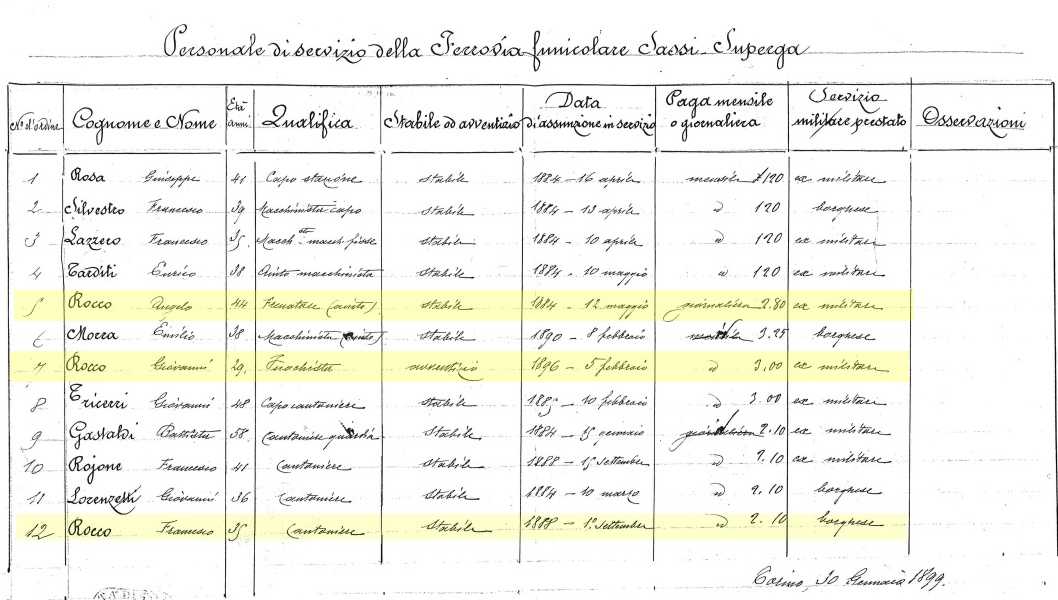 Personale di servizio della Ferrovia funicolare Sassi-Superga
N° d'ordine Cognome e Nome Età anni Qualifica Stabile od avventizio Data di assunzione in servizio Paga mensile o giornaliera Servizio militare prestato Osservazioni
1 Rosa Giuseppe 41 Capo stazione stabile 1884 - 16 aprile mensile £ 120 ex militare
2 Silvestro Francesco 39 Macchinista capo stabile 1884 - 13 aprile id 120 borghese
3 Lazzero Francesco 35 stabile 1884 - 10 aprile id 120 ex militare
4 Tarditi Enrico 38 Aiuto macchinista stabile 1884 - 10 maggio id 120 ex militare
5 Rocco Angelo 44 Frenatore (aiuto) stabile 1884 - 12 maggio giornaliera 2.80 ex militare
6 Morra Emilio 38 Macchinista stabile 1890 - 8 febbraio 3.25 borghese
7 Rocco Giovanni 29 Fuochista avventizio 1896 - 5 febbraio id 3.00 ex militare
8 Tricerri Giovanni 48 Capo cantoniere stabile 1885 - 10 febbraio id 3.00 ex militare
9 Gastaldi Battista 58 Cantoniere guardia stabile 1884 - 15 gennaio 2.10 ex militare
10 Rojone Francesco 41 Cantoniere Stabile 1888 - 15 settembre id 2.10 ex militare
11 Lorenzetti Giovanni 36 Cantoniere Stabile 1884 - 10 marzo id 2.10 borghese
12 Rocco Francesco 35 Cantoniere Stabile 1888 - 1° settembre id 2.10 borghese
Torino, 30 Gennaio 1899.